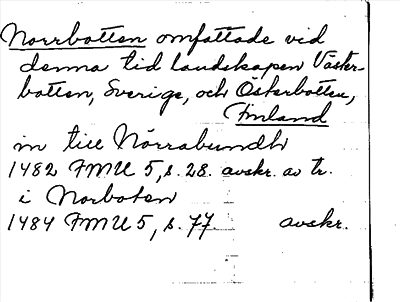 Norrbotten omfattade vid
denna tid landskapen Väster-
botten, Sverige, och Österbotten,
Finland
in till Nørrabundh
1482 FMU 5, s. 28. avskr. av tr.
i Norboten
1484 FMU 5, s. 77. avskr.